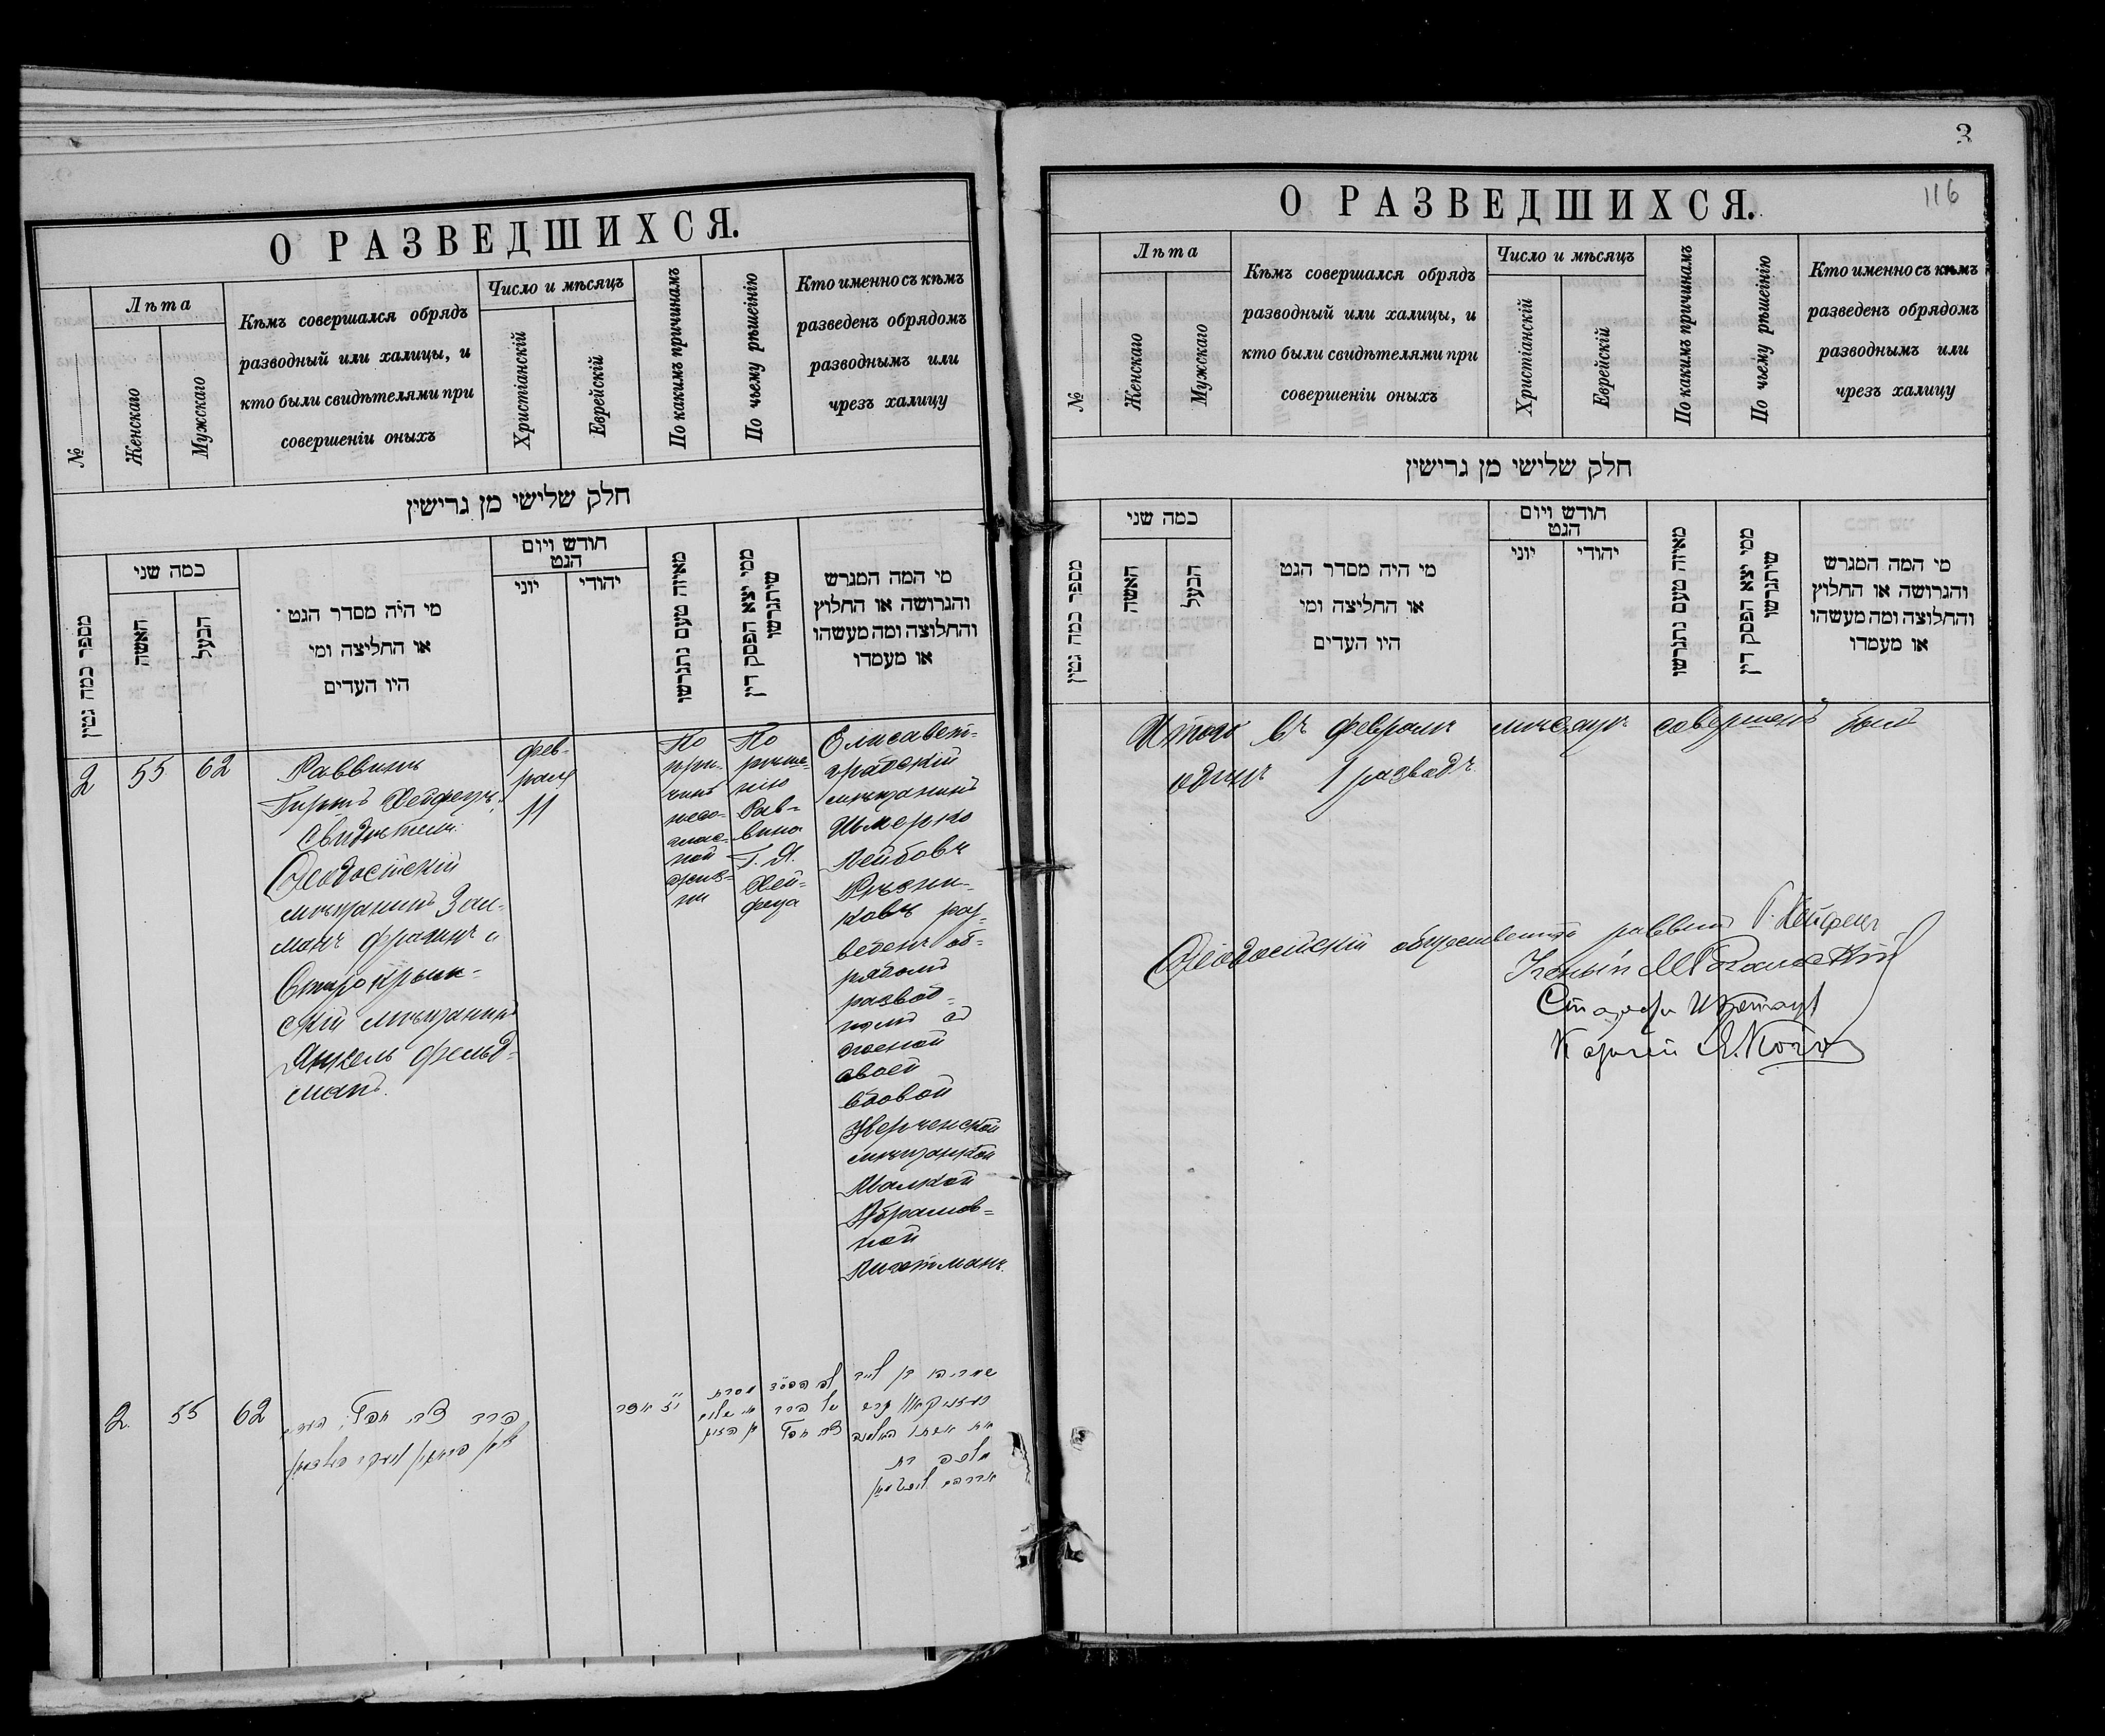 О РАЗВЕДШИХСЯ.
№
Лѣта
Женскаго
Мужскаго
Кѣмъ совершался обрядъ
разводный или халицы, и
кто были свидѣтелями при
совершеніи оныхъ
Число и мѣсяцъ
Христіанскій
Еврейскій
По какимъ причинамъ
По чьему рѣшеінію
Кто именно съ кѣмъ
разведенъ обрядомъ
разводнымъ или
чрезъ халицу
חלק שלישי מן גרישין
מספר כמה גטין
כמה שני
האשה
הבעל
מי היה מסדר הגט
או החליצה ומי
היו העדים
חודש ויום
הגט
יוני
יהודי
מאיזה טעם נתגרשו
ממי יצא הפסק דין
שיתגרשו
מי המה המגרש
והגרושה או החלוץ
והחלוצה ומה מעשהו
או מעמדו
2
55
62
Раввинъ
Гиршъ Хейфецъ,
Свидѣтели:
Ѳеодосійскій
мѣщанинъ Зал-
манъ Фрагинъ и
Старокрым-
скій мѣщанинъ
Янкель Фельд-
манъ.
Фев-
раля
11
По
при-
чинѣ
несо-
глас-
ной
жиз-
ни
По
рѣше-
нію
Рав-
вина
Г. Я.
Хей-
феца
Елисавет-
градскій
мѣщанинъ
Шмерко
Лейбовъ
Рѣзни-
ковъ раз-
веденъ об-
рядомъ
развод-
нымъ съ
женой
своей
вдовой
Керченской
мѣщанкой
Малкой
Абрамов-
ной
Лихтманъ.
2.
55
62
О РАЗВЕДШИХСЯ.
3
116
№
Лѣта
Женскаго
Мужскаго
Кѣмъ совершался обрядъ
разводный или халицы, и
кто были свидѣтелями при
совершеніи оныхъ
Число и мѣсяцъ
Христіанскій
Еврейскій
По какимъ причинамъ
По чьему рѣшеінію
Кто именно съ кѣмъ
разведенъ обрядомъ
разводнымъ или
чрезъ халицу
חלק שלישי מן גרישין
מספר כמה גטין
כמה שני
האשה
הבעל
מי היה מסדר הגט
או החליצה ומי
היו העדים
חודש ויום
הגט
יוני
יהודי
מאיזה טעם נתגרשו
ממי יצא הפסק דין
שיתגרשו
מי המה המגרש
והגרושה או החלוץ
והחלוצה ומה מעשהו
או מעמדו
Итого въ Февралѣ мѣсяцѣ совершенъ былъ
одинъ 1 разводъ.
Ѳеодосійскій общественный раввинъ Г. Хейфецъ
Ученый
Староста
Казначей